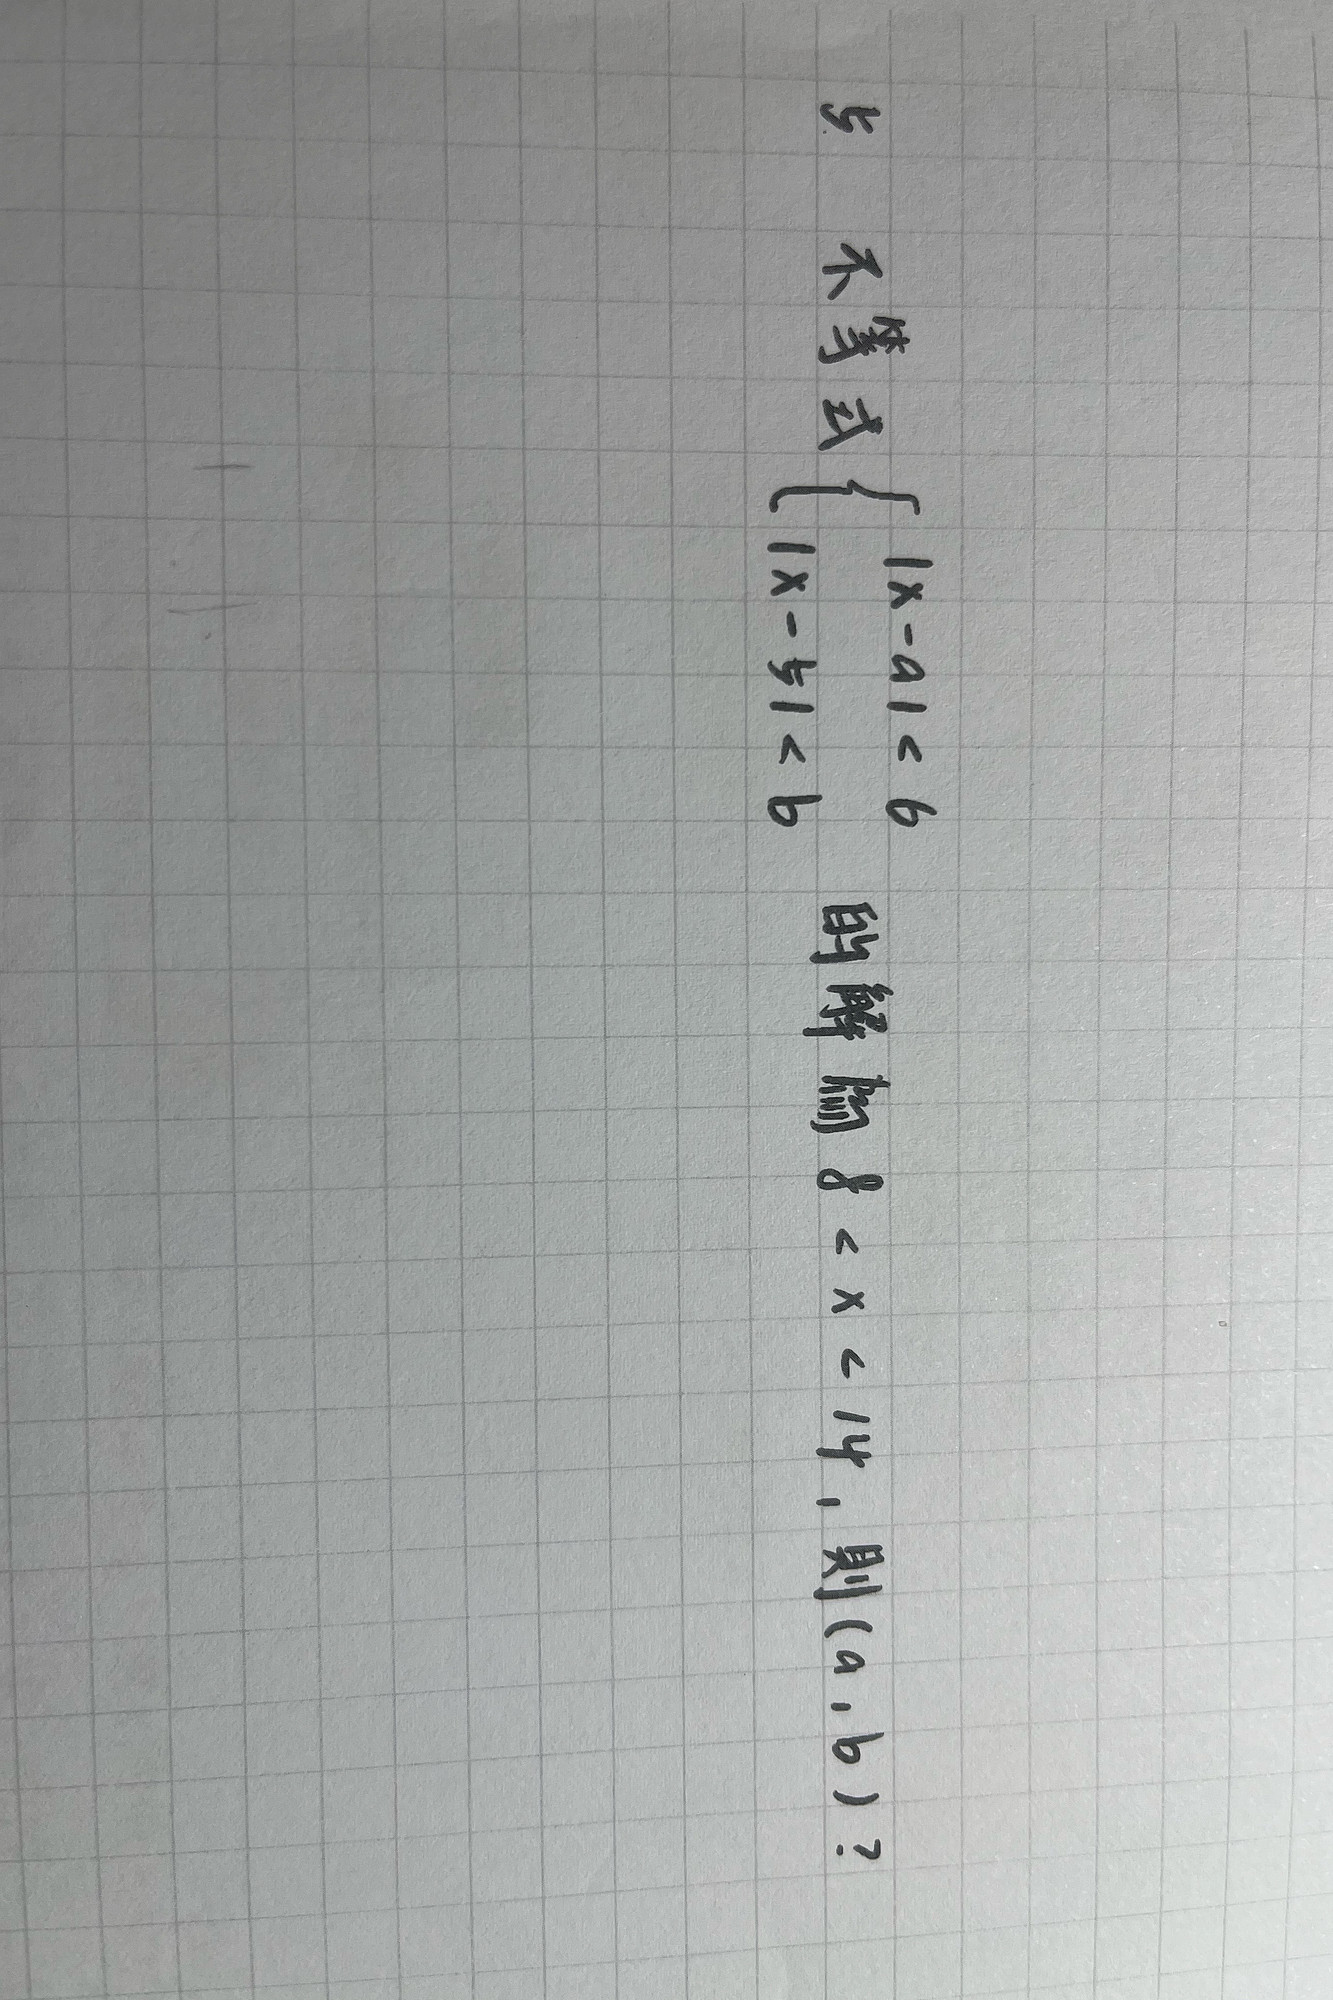 5. 不等式 { |x-a| < 6
|x-5| < b 的解為 8 < x < 14, 則 (a, b) ?